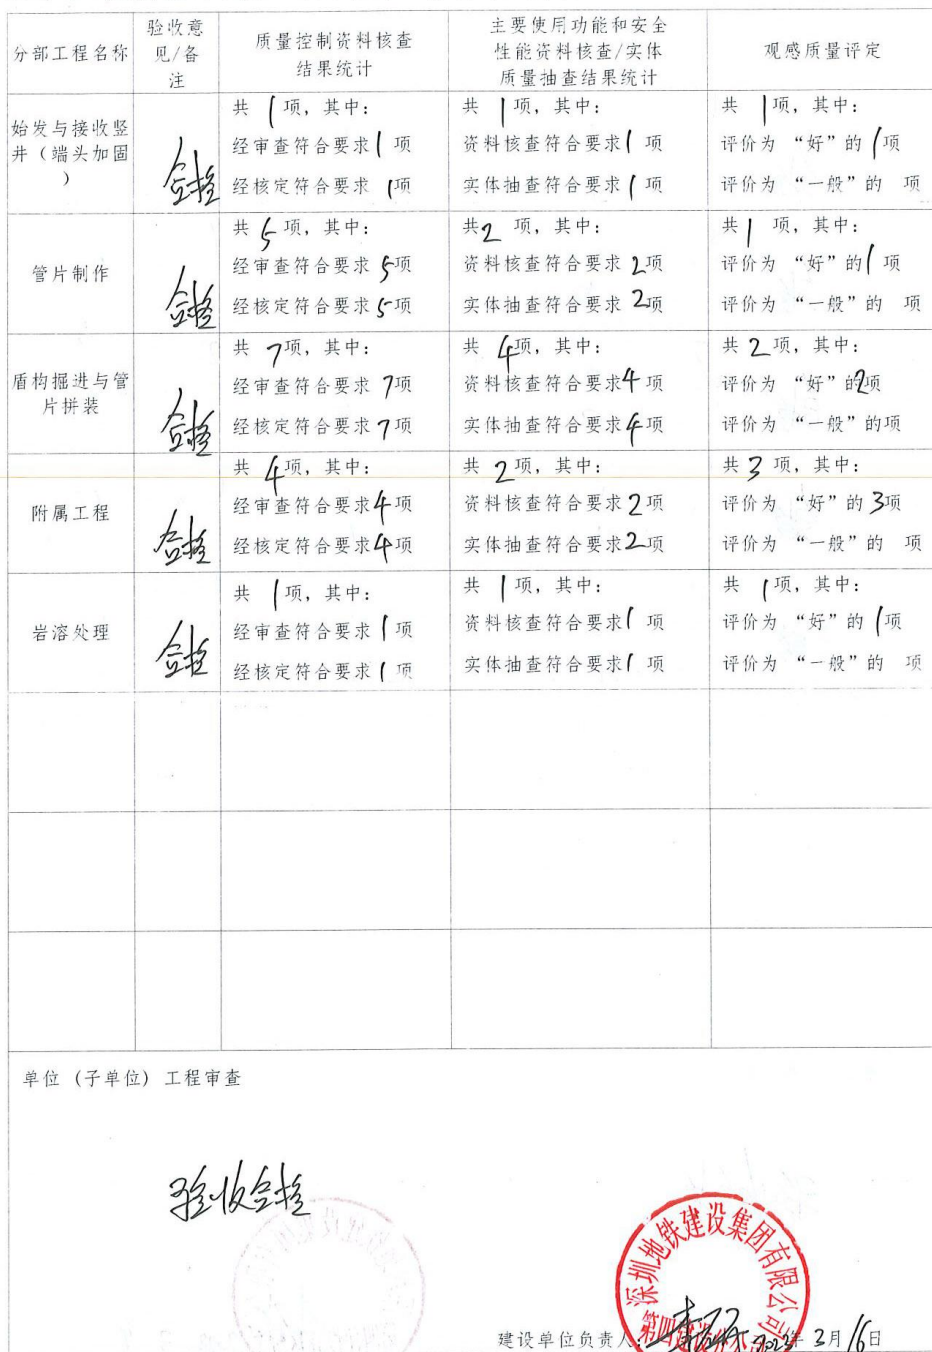 分部工程名称
验收意
见/备
注
质量控制资料核查
结果统计
主要使用功能和安全
性能资料核查/实体
质量抽查结果统计
观感质量评定
始发与接收竖
井（端头加固
）
合格
共 1项，其中：
经审查符合要求1 项
经核定符合要求 1项
共 1项，其中：
资料核查符合要求1 项
实体抽查符合要求1 项
共 1项，其中：
评价为 “好”的 1项
评价为 “一般”的 项
管片制作
合格
共 5 项，其中：
经审查符合要求 5项
经核定符合要求5项
共2 项，其中：
资料核查符合要求 2项
实体抽查符合要求 2项
共1 项，其中：
评价为 “好”的1 项
评价为 “一般”的 项
盾构掘进与管
片拼装
合格
共 7项，其中：
经审查符合要求 7项
经核定符合要求 7项
共 4项，其中：
资料核查符合要求4 项
实体抽查符合要求4项
共 2项，其中：
评价为 “好”的2项
评价为 “一般”的项
附属工程
合格
共 4项，其中：
经审查符合要求4项
经核定符合要求4项
共 2项，其中：
资料核查符合要求2项
实体抽查符合要求2项
共3 项，其中：
评价为 “好”的 3项
评价为 “一般”的 项
岩溶处理
合格
共 1项，其中：
经审查符合要求1项
经核定符合要求1 项
共 1项，其中：
资料核查符合要求1 项
实体抽查符合要求1 项
共 1项，其中：
评价为 “好”的 1项
评价为 “一般”的 项
单位（子单位）工程审查
验收合格
深圳地铁建设集团有限公司
第四建设分公司
建设单位负责人： 2023年 3月 16日